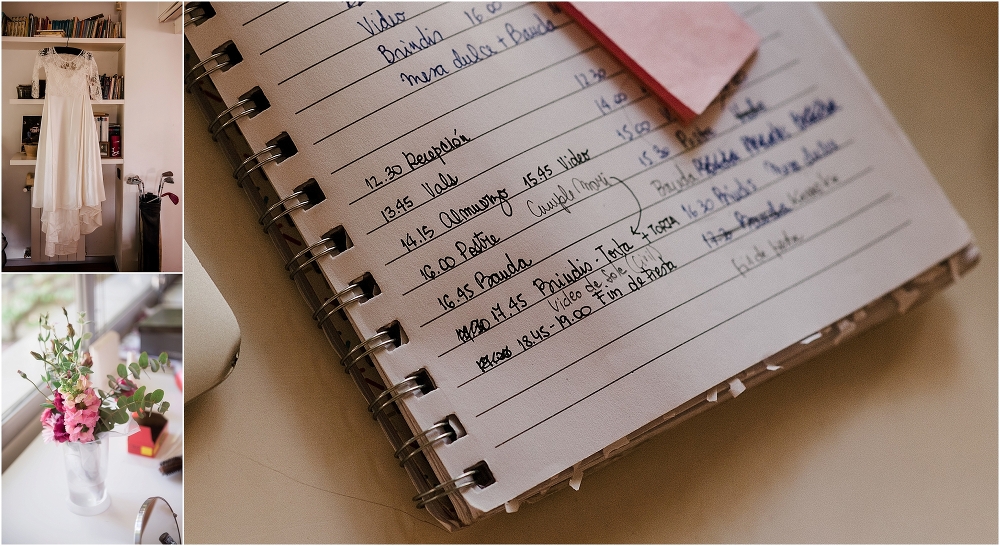 Video 16.00
Brindis
mesa dulce + Banda
12.30
14.00
15.00
15.30 Postre
Banda
16.30 Brindis Mesa dulce
fin de fiesta
12.30 Recepción
13.45 Vals
14.15 Almuerzo 15.45 Video
16.00 Postre Cumple Mari
16.45 Banda
17.45 Brindis - Torta + TORTA
Video de Sole
18.45 - 19.00 Fin de Fiesta